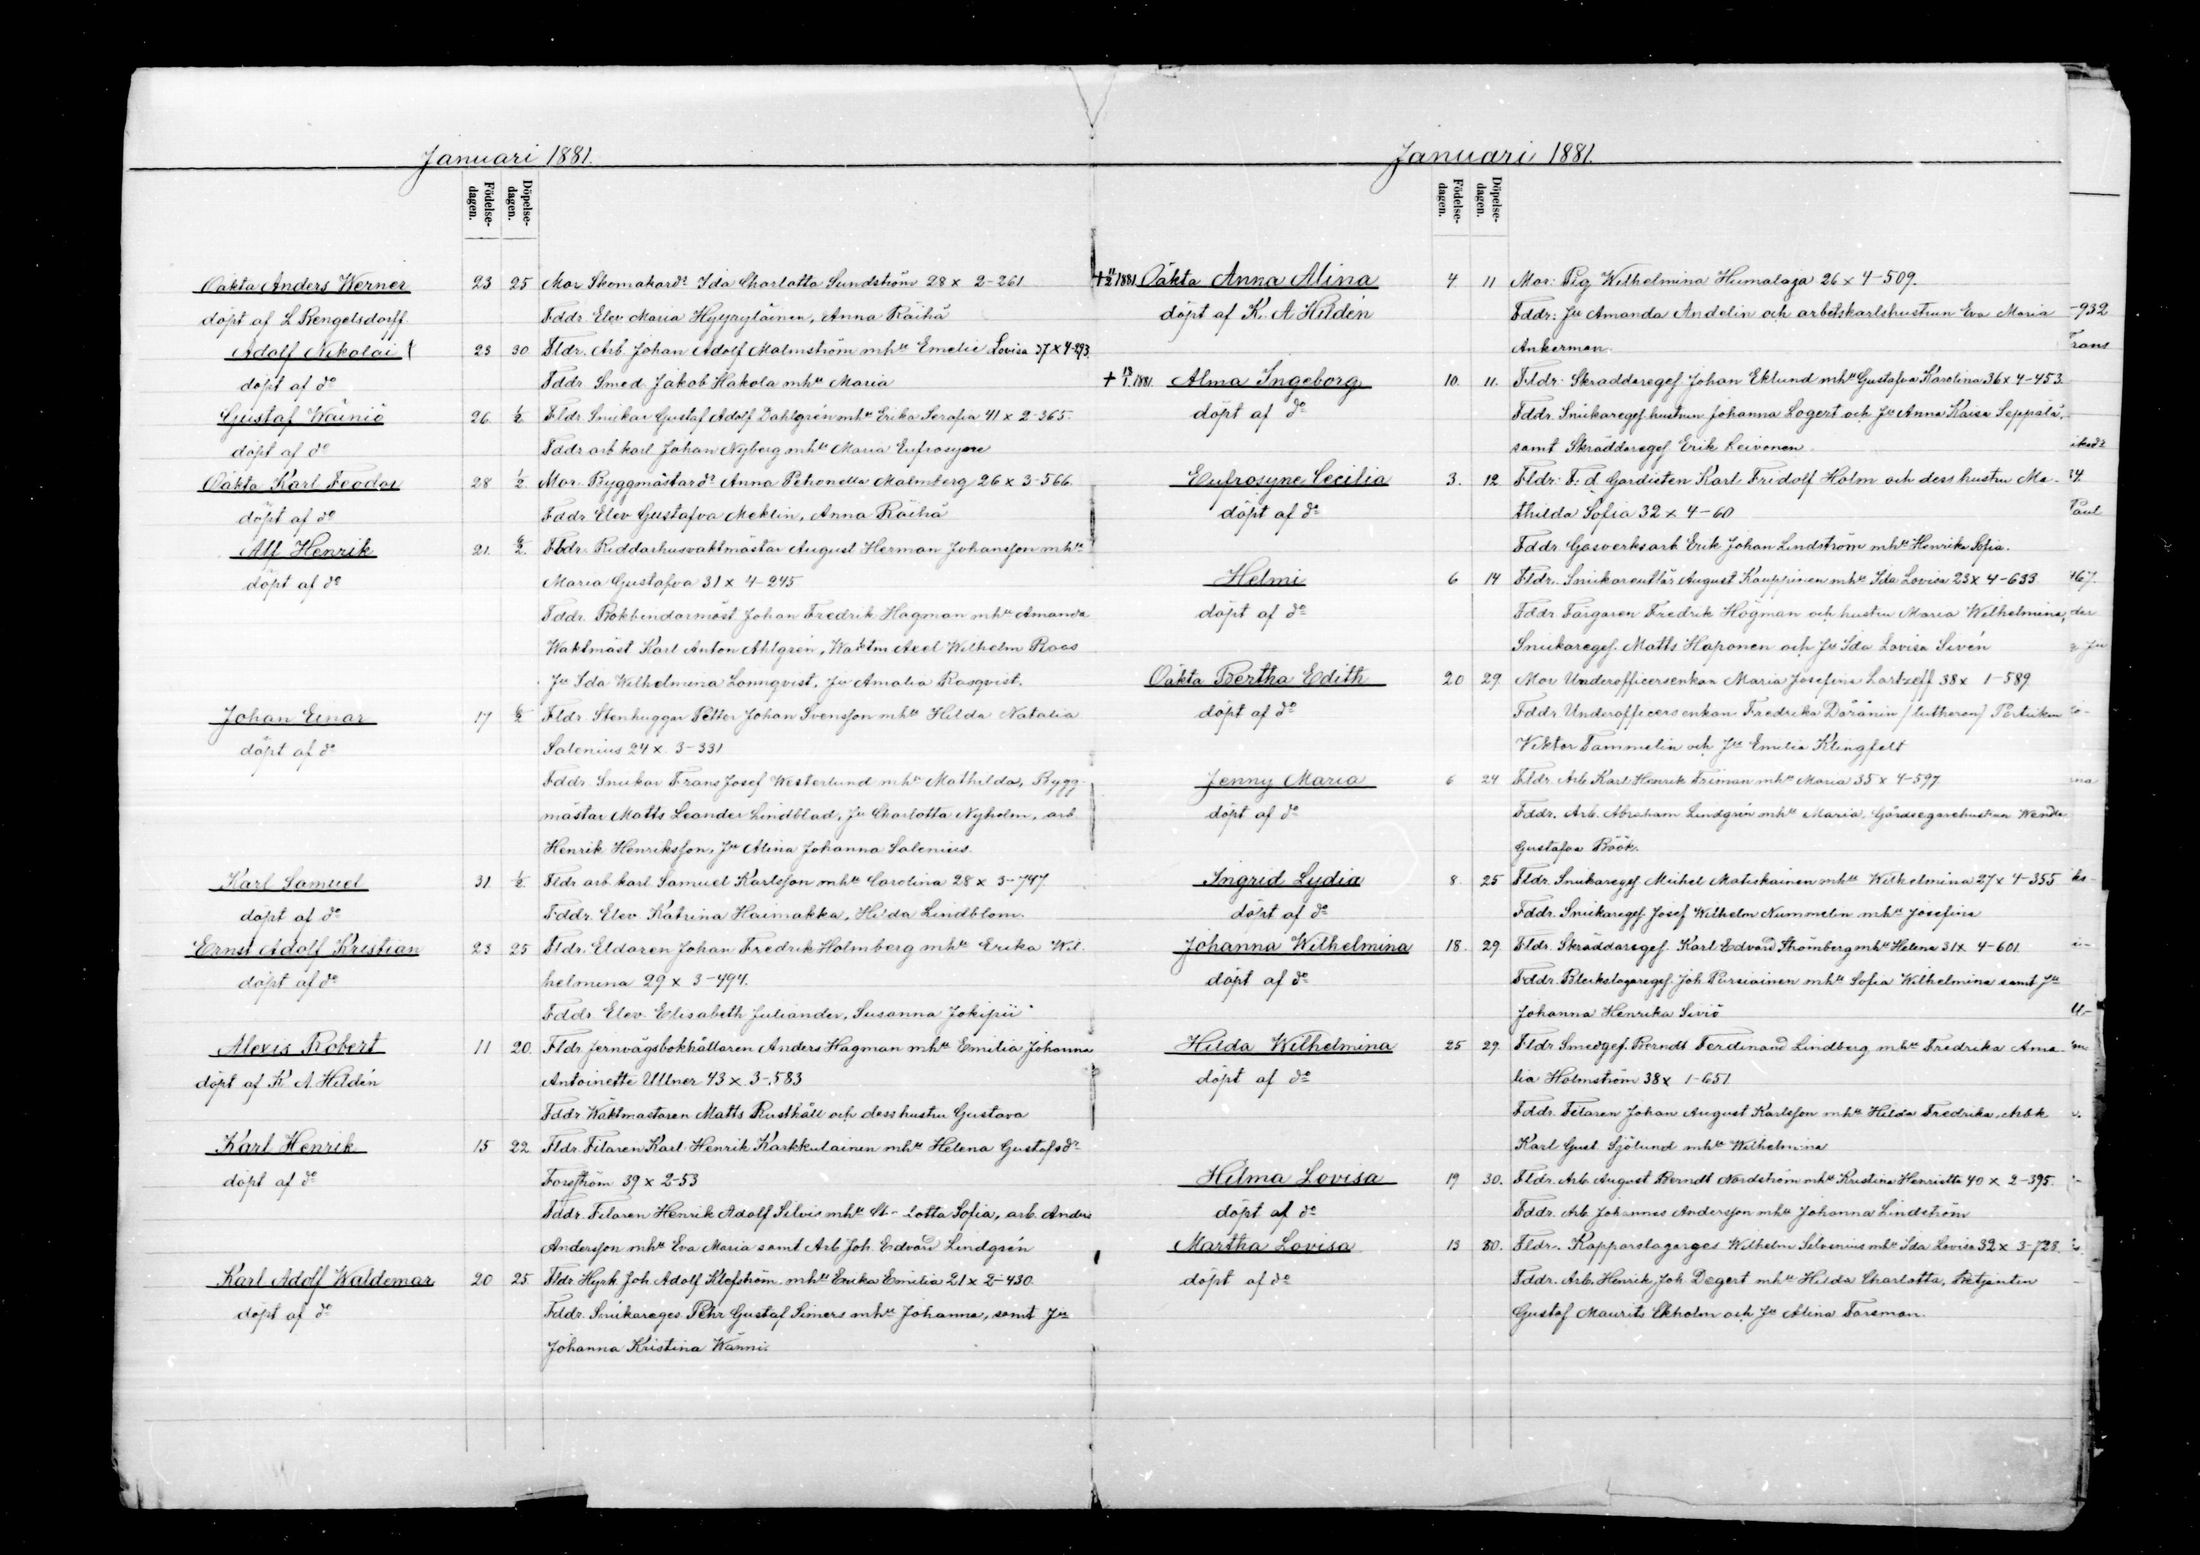 Januari 1881.
Födelse-dagen.
Döpelse-dagen.
Oäkta Anders Werner 23 25 Mor Skomakard:r Ida Charlotta Sundström 28 x 2-261
döpt af L Bengelsdorff. Fddr. Elev Maria Hyyryläinen, Anna Räihä
Adolf Nikolai 23 30 Fldr. Arb. Johan Adolf Malmström mhu Emelie Lovisa 37 x 4-293.
döpt af do Fddr. Smed. Jakob Hakola mhu Maria
Gustaf Wäiniö 26. 1/2 Fldr. Snickar Gustaf Adolf Dahlgrén mhu Erika Serafia 41 x 2-365.
döpt af do Fddr arb. karl Johan Nyberg mhu Maria Eufrosyne
Oäkta Karl Feodor 28 1/2 Mor. Byggmästard:r Anna Petronella Malmberg 26 x 3-566.
döpt af do Fddr Elev Gustafva Meklin, Anna Räihä
Alf Henrik 21. 6/2. Fldr. Riddarhusvaktmästar August Herman Johansson mhu
döpt af do Maria Gustafva 31 x 4-245
Fddr. Bokbindarmäst Johan Fredrik Hagman mhu Amanda
Waktmäst Karl Anton Ahlgrén, Waktm Axel Wilhelm Roos
Ju Ida Wilhelmina Lönnqvist, Ju Amalia Rosqvist.
Johan Einar 17 6/2 Fldr. Stenhuggar Petter Johan Svensson mhu Hilda Natalia
döpt af do Salenius 24 x. 3-331
Fddr. Snickar Frans Josef Westerlund mhu Mathilda, Bygg-
mästar Matts Leander Lindblad, Ju Charlotta Nyholm, arb.
Henrik Henriksson, Ju Alina Johanna Salenius.
Karl Samuel 31. 6/2. Fldr arb. karl Samuel Karlsson mhu Carolina 28 x 3-747.
döpt af do Fddr. Elev Katrina Haimakka, Hilda Lindblom.
Ernst Adolf Kristian 23 25 Fldr. Eldaren Johan Fredrik Holmberg mhu Erika Wil.
döpt af do helmina 29 x 3-494.
Fddr. Elev. Elisabeth Juliander, Susanna Jokipii
Alexis Robert 11 20. Fldr Jernvägsbokhållaren Anders Hagman mhu Emilia Johanna
döpt af K A. Hildén Antoinette Ullner 43 x 3-583
Fddr Waktmästaren Matts Rusthåll och dess hustru Gustava
Karl Henrik 15 22. Fldr. Filaren Karl Henrik Karkkulainen mhu Helena Gustafsd:r
döpt af do Forsström 39 x 2-53
Fddr. Filaren Henrik Adolf Silvis mhu Ch-lotta Sofia, arb. Anders
Andersson mhu Eva Maria samt Arb Joh. Edvard Lindgrén
Karl Adolf Waldemar 20 25. Fldr Hyrk Joh. Adolf Klefström mhu Erika Emilia 21 x 2-430.
döpt af do Fddr. Snickareges Pehr Gustaf Simers mhu Johanna, samt Ju
Johanna Kristina Wänni.
Januari 1881.
Födelse-dagen.
Döpelse-dagen.
+ 11/2 1881 Oäkta Anna Alina 4 11 Mor: Pig Wilhelmina Humalaja 26 x 4-509.
döpt af K. A Hildén Fddr: Ju Amanda Andelin och arbetskarlshustrun Eva Maria
Ankerman.
+ 13/1. 1881. Alma Ingeborg 10. 11. Fldr. Skräddaregef Johan Eklund mhu Gustafva Karolina 36 x 4-453.
döpt af do Fddr. Snickaregef. hustrun Johanna Logert och Ju Anna Kaisa Seppälä,
samt Skräddaregef Erik Leivonen.
Eufrosyne Cecilia 3. 12 Fldr. F. d Gardisten Karl Fridolf Holm och dess hustru Ma-
döpt af do thilda Sofia 32 x 4-60
Fddr Gasverksarb. Erik Johan Lindström mhu Henrika Sofia.
Helmi 6 14 Fldr. Snickareutlär August Kauppinen mhu Ida Lovisa 23 x 4-633
döpt af do Fddr Färgaren Fredrik Högman och hustru Maria Wilhelmina,
Snickaregef. Matts Haponen och Ju Ida Lovisa Sivén
Oäkta Bertha Edith 20 29. Mor Underofficersenkan Maria Josefina Lartzeff 38 x 1-589
döpt af do Fddr Underofficersenkan Fredrika Däränin (lutheran)
Viktor Tammelin och Ju Emilia Klingfelt
Jenny Maria 6 24 Fldr. Arb Karl Henrik Friman mhu Maria 35 x 4-597
döpt af do Fddr. Arb. Abraham Lindgrén mhu Maria, Gårdsegarehustrun Wendla
Gustafva Böök.
Ingrid Lydia 8. 25 Fldr. Snickaregef Mickel Matiskainen mhu Wilhelmina 27 x 4-355
döpt af do Fddr. Snickaregef. Josef Wilhelm Nummelin mhu Josefina
Johanna Wilhelmina 18. 29. Fldr. Skräddaregef. Karl Edvard Strömberg mhu Helena 31 x 4-601.
döpt af do Fddr. Bleckslagaregef. Joh Pursiainen mhu Sofia Wilhelmina samt Ju
Johanna Henrika Siviö
Hilda Wilhelmina 25 29. Fldr Smedgef. Berndt Ferdinand Lindberg mhu Fredrika Ama-
döpt af do lia Holmström 38 x 1-651
Fddr. Filaren Johan August Karlsson mhu Hilda Fredrika, Arbk
Karl Gust. Sjölund mhu Wilhelmina
Hilma Lovisa 19 30. Fldr. Arb. August Berndt Nordström mhu Kristina Henrietta 40 x 2-395.
döpt af do Fddr. Arb. Johannes Andersson mhu Johanna Lindström
Martha Lovisa 13 30. Fldr. Kopparslagarges Wilhelm Silvenius mhu Ida Lovisa 32 x 3-728.
döpt af do Fddr. Arb. Henrik Joh. Degert mhu Hilda Charlotta, Betjenten
Gustaf Maurits Ekholm och Ju Alina Forsman.
-932
Frans
34.
Paul
467.
der